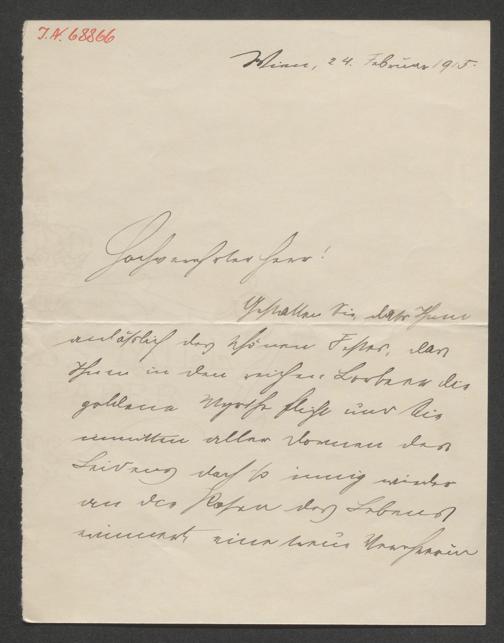 J.N. 68866
Wien, 24. Februar 1915.
Hochverehrter Herr!
Gestatten Sie, daß Ihnen
anläßlich des schönen Festes, das
Ihnen in den reichen Lorbeer die
goldene Myrthe flicht und Sie
inmitten aller Dornen des
Leidens doch so innig wieder
an die Rosen des Lebens
erinnert, eine treue Verehrerin